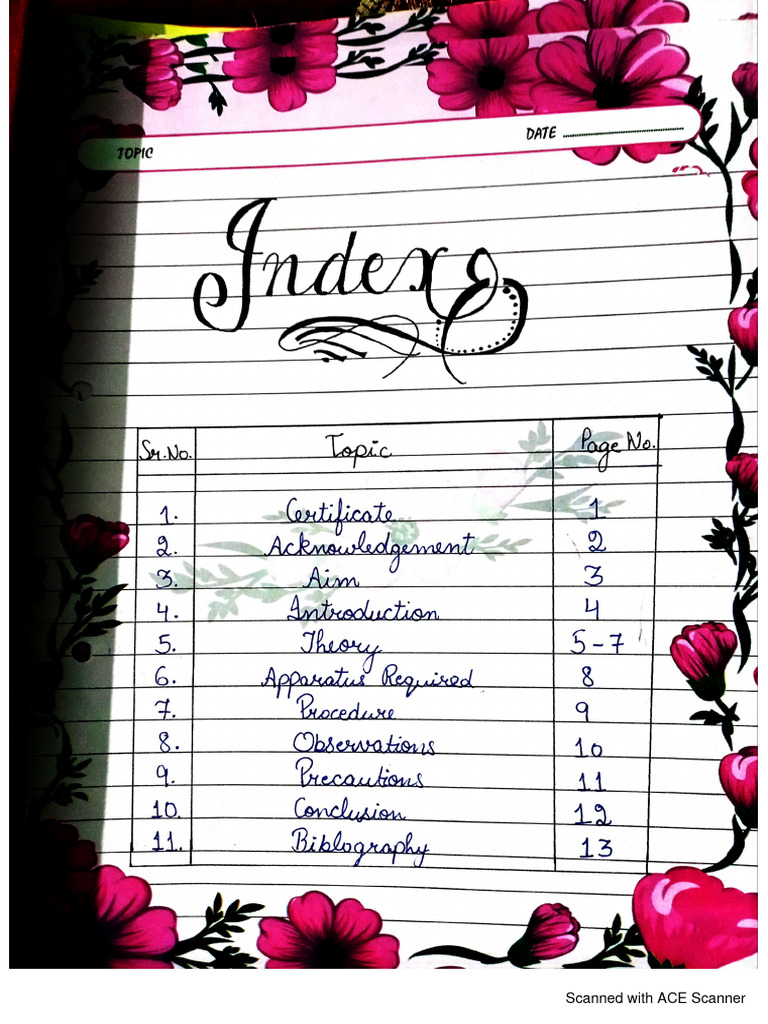 DATE
TOPIC
Index
Sr.No. Topic Page No.
1. Certificate 1
2. Acknowledgement 2
3. Aim 3
4. Introduction 4
5. Theory 5-7
6. Apparatus Required 8
7. Procedure 9
8. Observations 10
9. Precautions 11
10. Conclusion 12
11. Biblography 13
Scanned with ACE Scanner